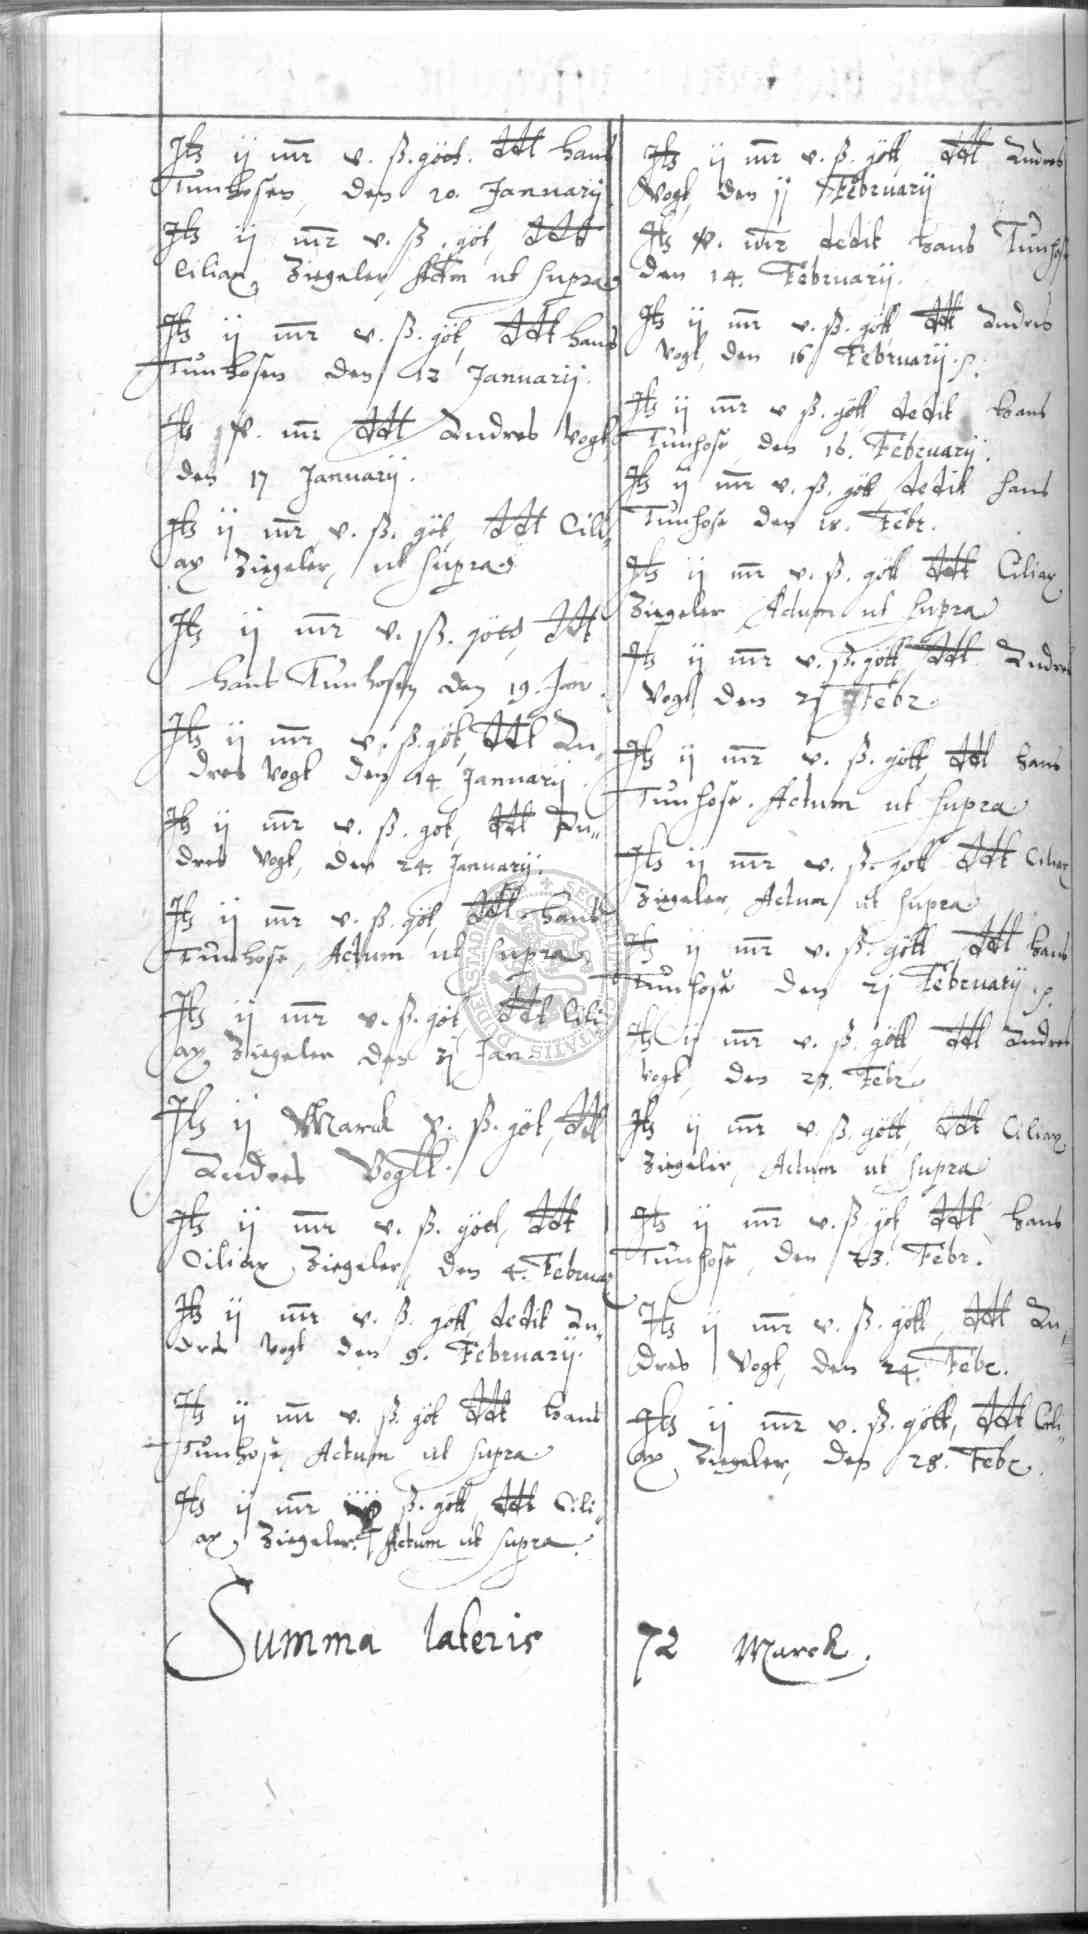 Jtz ij mr v. ß. göt. ddt hans
Tunhosen, den 20. Januarij
Jtz ij mr v. ß. göt, ddt
Ciliax Ziegeler, Actm ut supra
Jtz ij mr v. ß. göt, ddt hans
Tunhosen den 12 Januarij.
Jtz mr ddt Andres Vogt,
den 17 Januarij.
Jtz ij mr v. ß. göt, ddt Cili„
ax Ziegeler, ut supra
Jtz ij mr v. ß. göt, ddt
hans Tunhosen den 19. Jan
Jtz ij mr v. ß. göt, ddt An„
dres Vogt den 14 Januarij.
Jtz ij mr v. ß. göt, ddt An„
dres Vogt, den 24. Januarij.
Jtz ij mr v. ß. göt, ddt hans
Tunhose, Actum ut supra
Jtz ij mr v. ß. göt ddt Cili„
ax Ziegeler den 31 Jan
Jtz ij Marck v. ß. göt, ddt
Andres Vogtt.
Jtz ij mr v. ß. göt, ddt
Ciliax Ziegeler, den 4. Februar
Jtz ij mr v. ß. gött, dedit An„
dres Vogt den 9. Februarij.
Jtz ij mr v. ß. göt ddt hans
Tunhose, Actum ut supra
Jtz ij mr ß. gött, ddt Cili„
ax Ziegeler. Actum ut supra.
Summa lateris
Jtz ij mr v. ß. gött, ddt Andres
Vogt, den 11 Februarij
Jtz mr dedit hans Tunhose
den 14. Februarij.
Jtz ij mr v. ß. gött ddt Andres
Vogt, den 16 Februarij.
Jtz ij mr v ß. gött dedit hans
Tunhose, den 16. Februarij.
Jtz ij mr v. ß. gött, dedit hans
Tunhose den 18. Febr.
Jtz ij mr v. ß. gött ddt Ciliax
Ziegeler Actum ut supra
Jtz ij mr v. ß. gött ddt Andres
Vogt, den 21 Febr.
Jtz ij mr v. ß. gött, ddt hans
Tunhose. Actum ut supra
Jtz ij mr v. ß. gött ddt Ciliax
Ziegeler, Actum ut supra
Jtz ij mr v. ß. gött, ddt hans
Tunhose den 21 Februarij
Jtz ij mr v. ß. gött, ddt Andres
Vogt, den 28. Febr
Jtz ij mr v. ß. gött, ddt Ciliax
Ziegeler, Actum ut supra
Jtz ij mr v. ß. göt ddt hans
Tunhose, den 23. Febr.
Jtz ij mr v. ß. gött, ddt An„
dres Vogt, den 24. Febr.
Jtz ij mr v. ß. gött, ddt Cili„
ax Ziegeler, den 28. Febr.
72 Marck.